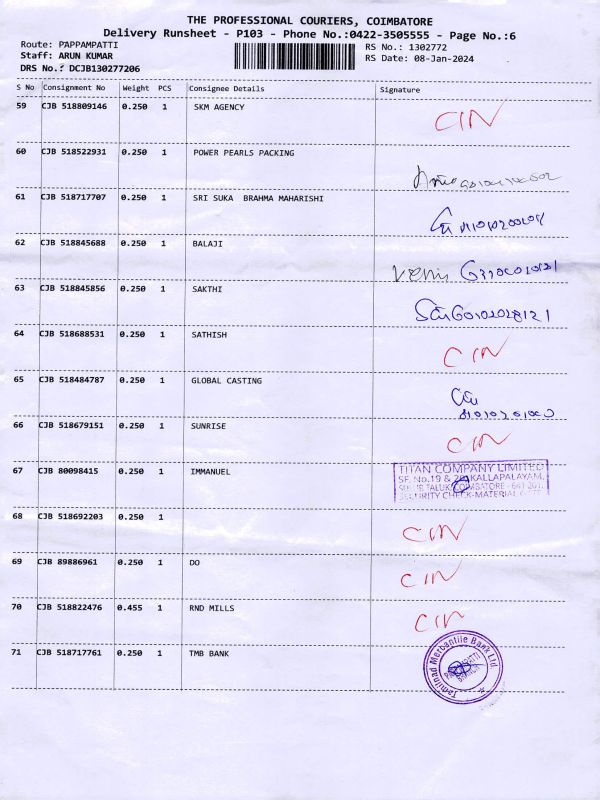 THE PROFESSIONAL COURIERS, COIMBATORE
Delivery Runsheet - P103 - Phone No.:0422-3505555 - Page No.:6
Route: PAPPAMPATTI
Staff: ARUN KUMAR
DRS No.: DCJB130277206
RS No.: 1302772
RS Date: 08-Jan-2024
S No Consignment No Weight PCS Consignee Details Signature
59 CJB 518809146 0.250 1 SKM AGENCY CIN
60 CJB 518522931 0.250 1 POWER PEARLS PACKING
61 CJB 518717707 0.250 1 SRI SUKA BRAHMA MAHARISHI
62 CJB 518845688 0.250 1 BALAJI
63 CJB 518845856 0.250 1 SAKTHI
64 CJB 518688531 0.250 1 SATHISH CIN
65 CJB 518484787 0.250 1 GLOBAL CASTING
66 CJB 518679151 0.250 1 SUNRISE CIN
67 CJB 80098415 0.250 1 IMMANUEL
TITAN COMPANY LIMITED
SF. No.19 & KALLAPALAYAM,
TALUK, COIMBATORE - 641 201.
SECURITY CHECK-MATERIAL
68 CJB 518692203 0.250 1 CIN
69 CJB 89886961 0.250 1 DO CIN
70 CJB 518822476 0.455 1 RND MILLS CIN
71 CJB 518717761 0.250 1 TMB BANK
Tamilnad Mercantile Bank Ltd.
BRANCH